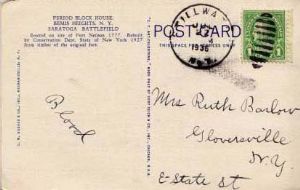 PERIOD BLOCK HOUSE,
BEMIS HEIGHTS, N. Y.
SARATOGA BATTLEFIELD
Erected on site of Fort Neilson 1777. Rebuilt
by Conservation Dept. State of New York 1927
from timber of the original fort.
POST CARD
THIS SPACE FOR ADDRESS ONLY
STILLWA
1936
N.Y.
Blood
Mrs Ruth Barlow
Gloversville
N.Y.
E-State St